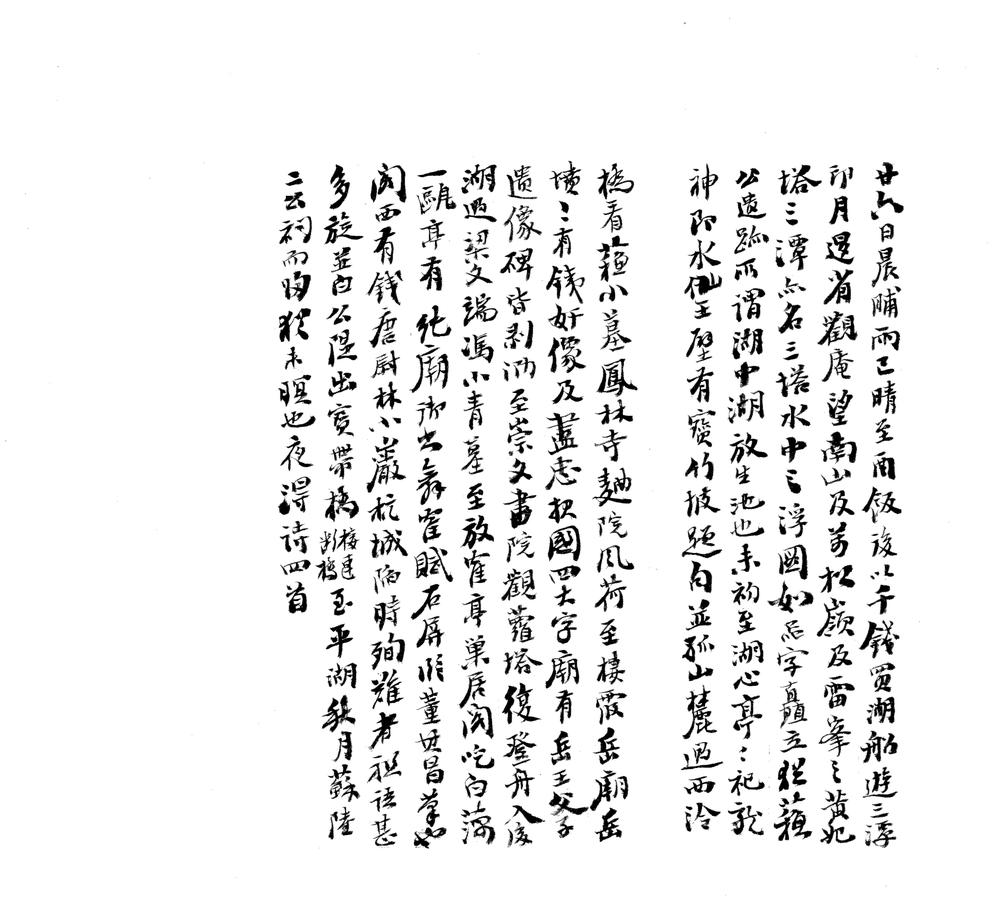 廿六日晨晡雨已晴至酉飯後以千錢買湖船遊三潭
印月退省觀庵望南山及萬松嶺及雷峯之黃妃
塔三潭亦名三塔水中三浮圖如品字矗立猶蘇
公遺跡所謂湖中湖放生池也未初至湖心亭々祀龍
神即水仙王壁有寶竹坡題句並孤山麓過西泠
橋看蘇小墓鳳林寺麯院風荷至棲霞岳廟岳
墳々有銕奸像及盡忠報國四大字廟有岳王父子
遺像碑皆剥泐至崇文書院觀蘿塔復登舟入後
湖過梁文端馮小青墓至放寉亭巢居閣吃白藕
一甌亭有純廟御書舞寉賦石屏臨董其昌筆也
閣西有錢唐尉林小巖杭城陷時殉難者祖語甚
多旋並白公隄出寶帶橋接連斷橋至平湖秋月蘇陸
二公祠而日猶未暝也夜得詩四首